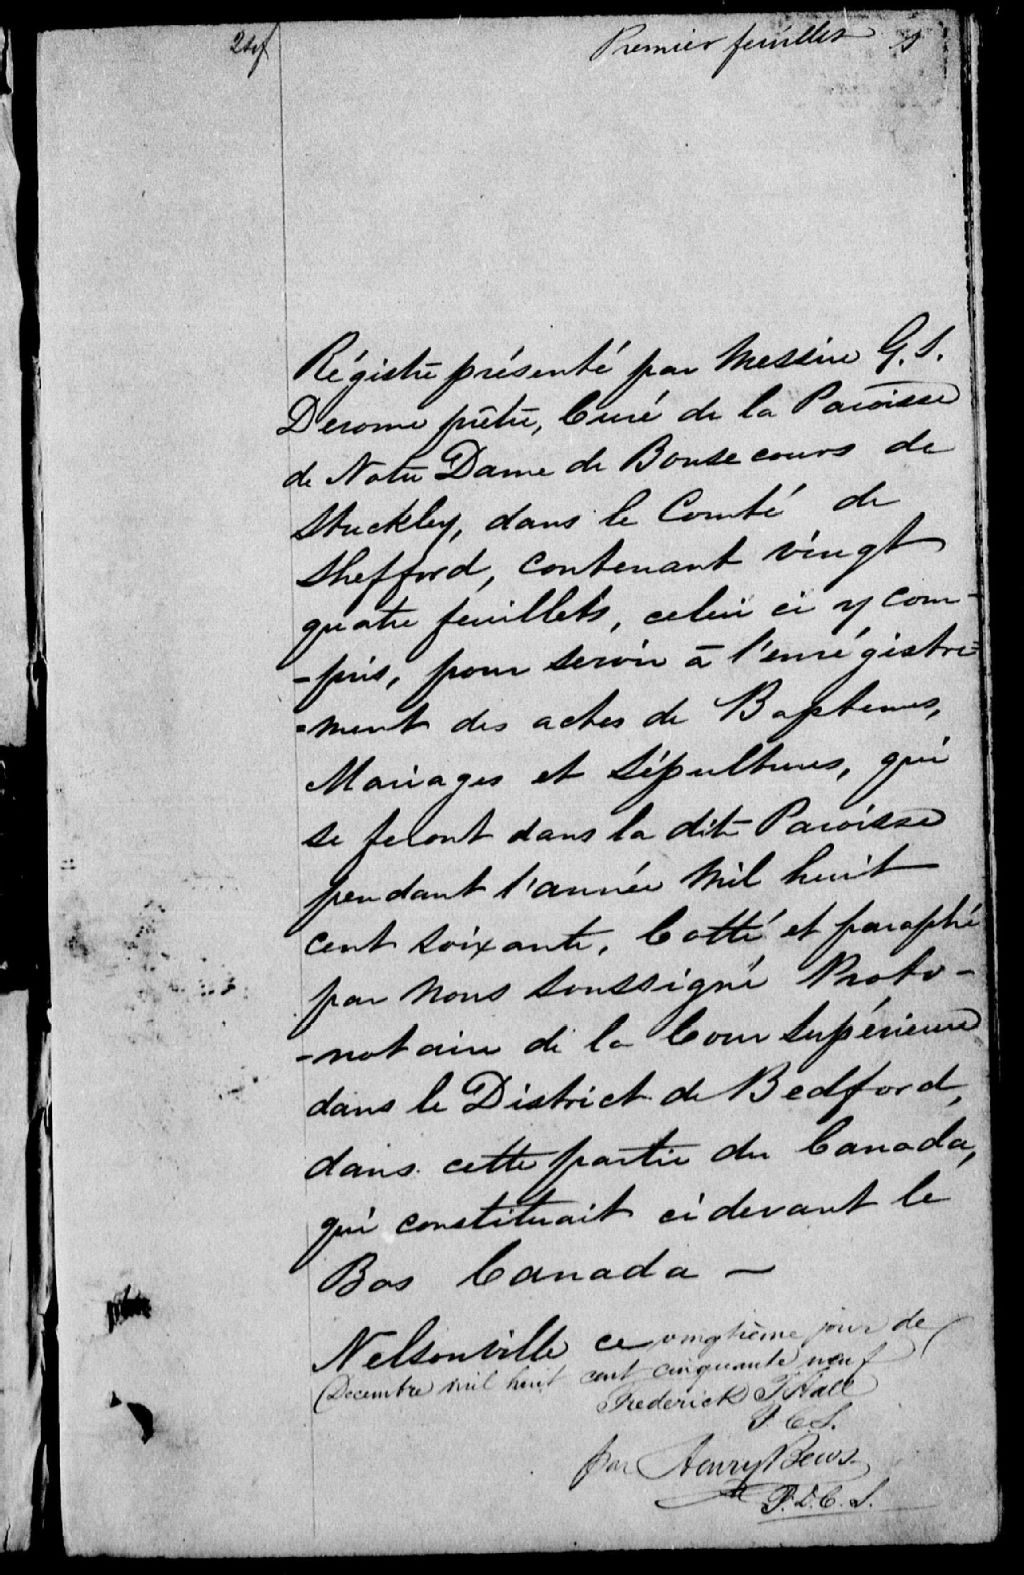 24f Premier feuillet 1
Régistre présenté par Messire G. S.
Derome prêtre, Curé de la Paroisse
de Notre Dame de Bonsecours de
Stuckley, dans le Comté de
Shefford, contenant vingt
quatre feuillets, celui ci y com-
-pris, pour servir à l'enrégistre=
=ment des actes de Baptemes,
Mariages et Sépultures, qui
se feront dans la dite Paroisse
pendant l'année Mil huit
cent soixante, Cotté et paraphé
par Nous soussigné Proto-
-notaire de la Cour Supérieure
dans le District de Bedford,
dans cette partie du Canada,
qui constituait ci devant le
Bas Canada —
Nelsonville ce vingtième jour de
Decembre mil huit cent cinquante neuf
Frederick T Hall
P. C. S.
par Henry Bews
P. D. C. S.